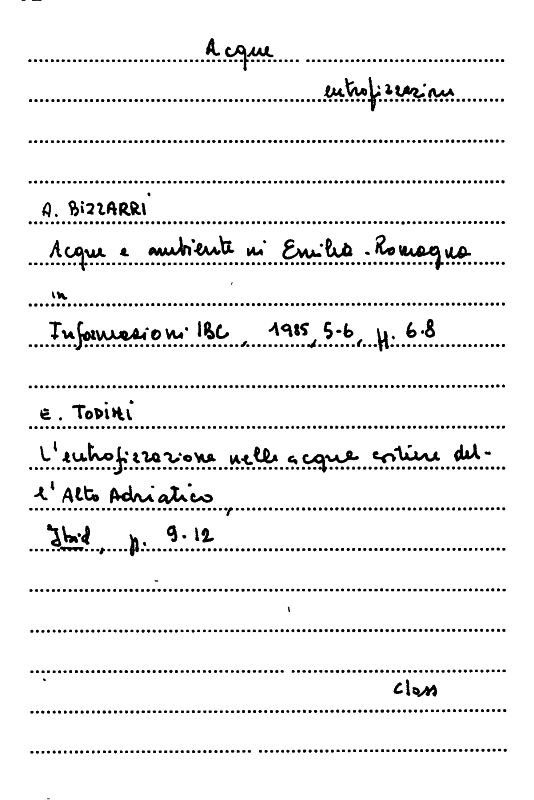 Acque
eutrofizzazione
A. BIZZARRI
Acque e ambiente in Emilia-Romagna
in
Informazioni IBC, 1985, 5-6, pp. 6-8
E. TODINI
L'eutrofizzazione nelle acque costiere del-
l'Alto Adriatico,
Ibid, p. 9-12
class